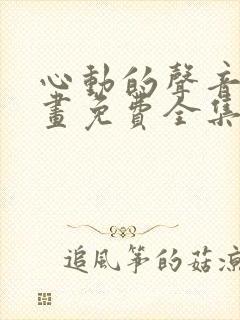 心動的聲音
畫免費全集
追風箏的菇涼